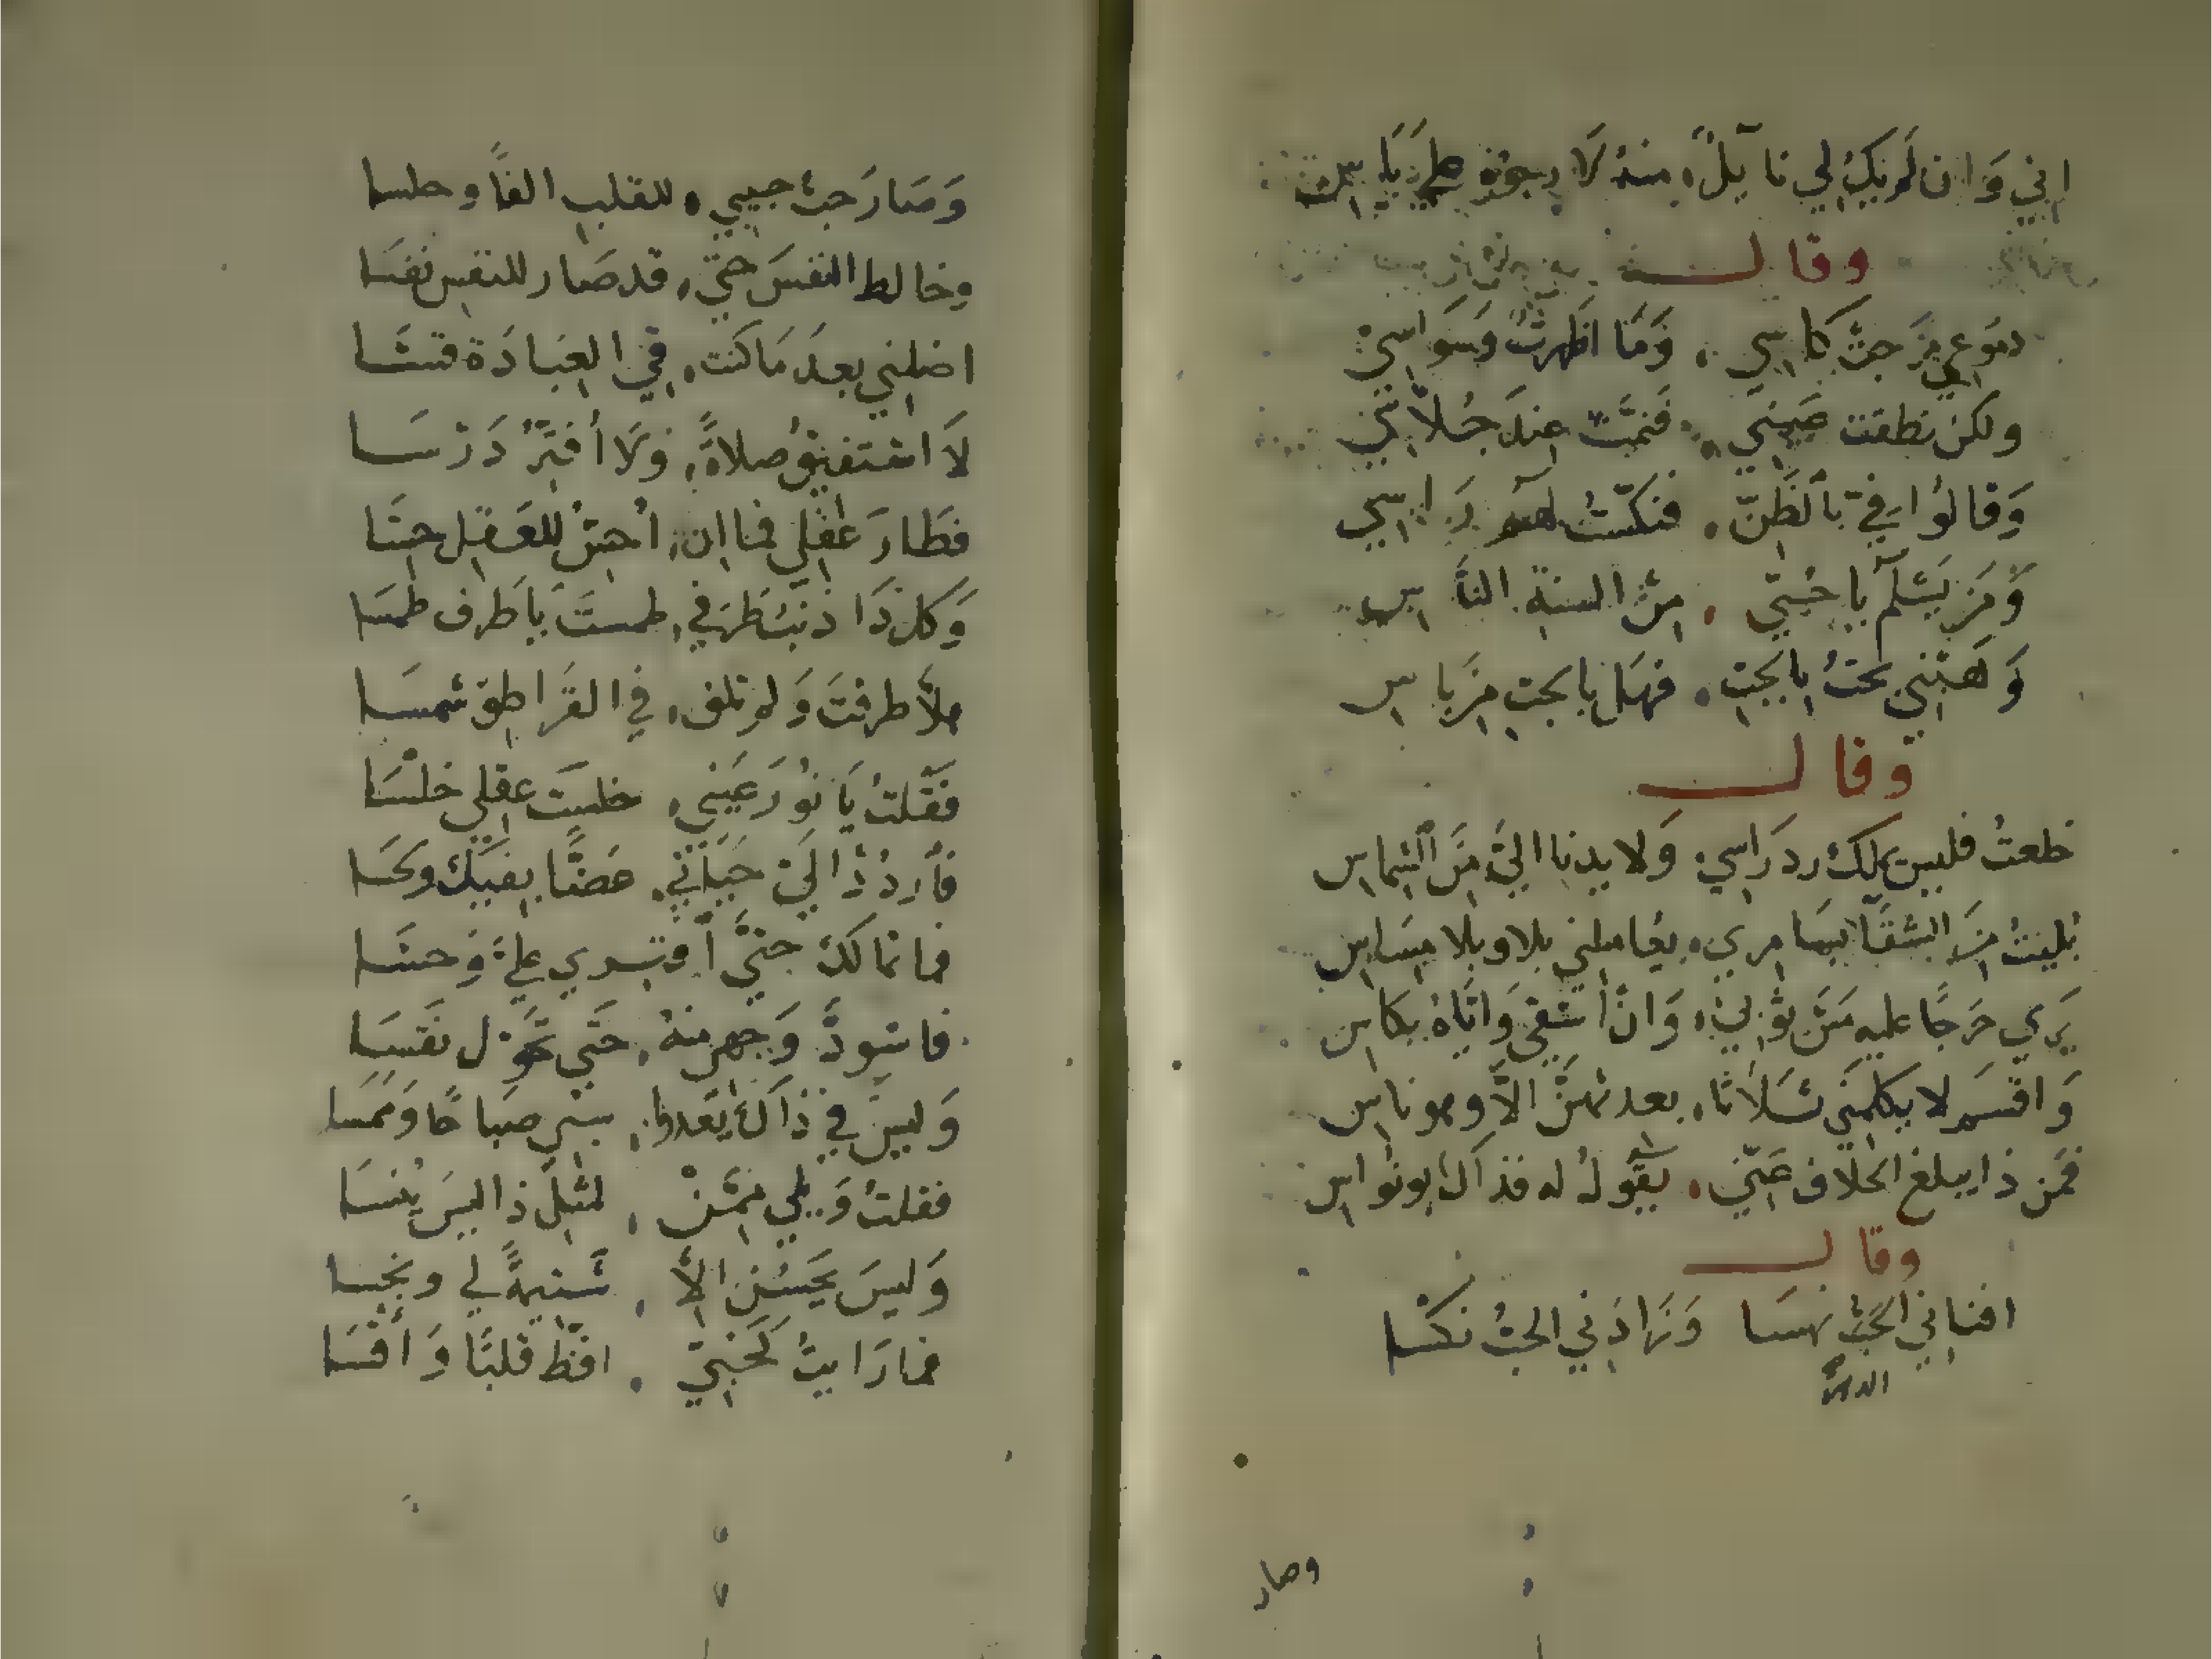 اني وان لم يك لي نا يل منه لا رجوه طر يا
وقال
دموعي مزجت كاسي وما اظهرت وسواسي
ولكن نطقت عيني فنمت عند جلاسي
وقالوا في بالظن فنكست لهم راسي
ومن يسلم يا حبي من السنة الناس
وهبني بحت بالحب فهل بالحب من باس
وقال
خلعت فليس يملك رد راسي ولا يدنا الي من الشماس
بليت من الشقا بسامري يعاملني بلا وبلا مساس
يري حرجا عليه متى يوليني وان اسقي واياه بكاس
واقسم لا يكلمني ثلاثا بعد تهن الا وهو ناس
فمن ذا يبلغ الخلاف عني بقوله له فذاك ابونواس
وقال
افناني الحب نهسا وزادني الحب نكسا
الدهر
وصار
وصار حب حبيبي للقلب الفا وحلسا
وخالط النفس حتى قد صار للنفس نفسا
اضلني بعد ما كنت في العبادة قسا
لا استفيق صلاة ولا أفتر درسا
فطار عقلي فما ان احس للعقل حسا
وكل ذا ذنب طرفي طمست يا طرف طمسا
هلا طرفت ولم تلق في القراطق شمسا
فقلت يا نور عيني خلست عقلي خلسا
فاردد الي حياتي عضا بفيك ولحسا
فما تمالك حتى اوتسري علي وحسا
فاسود وجهي منه حتى تحول نقسا
وليس في ذاك يعدوا بسي صباحا وممسا
فقلت ويلي ممن لمثل ذا ليس ينسا
وليس يحسن الا شتيمة لي وبخسا
فما رايت كحبي افظ قلبا وأقسا